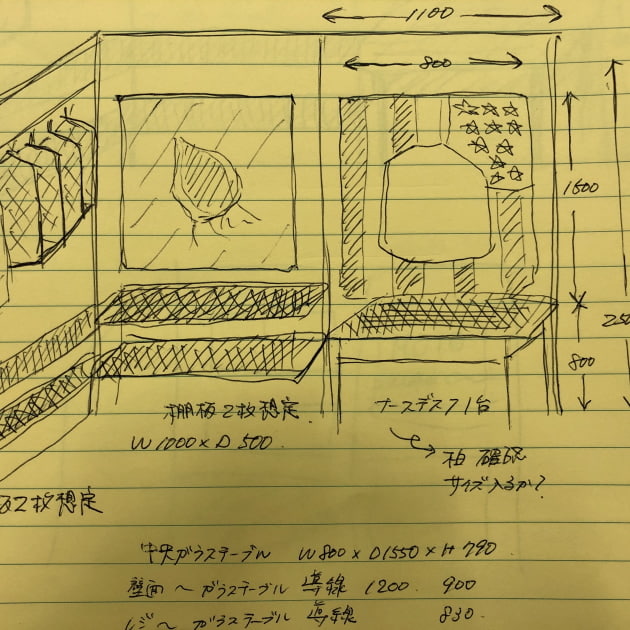 1100
800
1500
250
800
棚板2枚想定
W1000×D500.
ナースデスク1台
柏 確認
サイズ入るか?
板2枚想定
中央ガラステーブル W800×D1550×H790
壁面〜ガラステーブル 導線 1200. 900
レジ〜ガラステーブル 導線 830